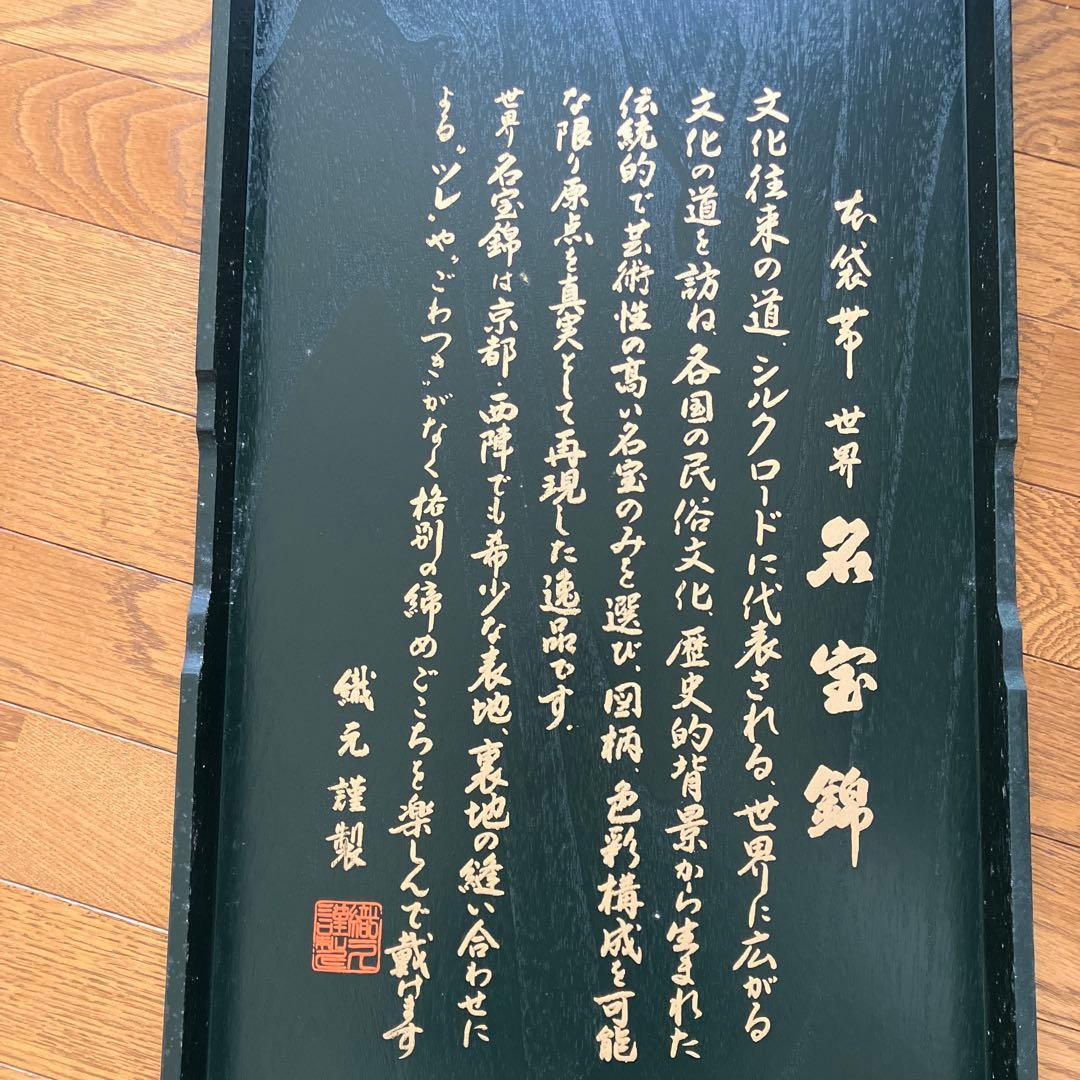 本袋帯 世界 名宝錦
文化往来の道、シルクロードに代表される、世界に広がる
文化の道を訪ね、各国の民俗文化、歴史的背景から生まれた
伝統的で芸術性の高い名宝のみを選び、図柄、色彩構成を可能
な限り原点を真実として再現した逸品です.
世界名宝錦は京都・西陣でも希少な表地、裏地の縫い合わせに
よる"ツレ"や"ごわつき"がなく格別の締めごこちを楽しんで戴けます
織元謹製
織元
謹製